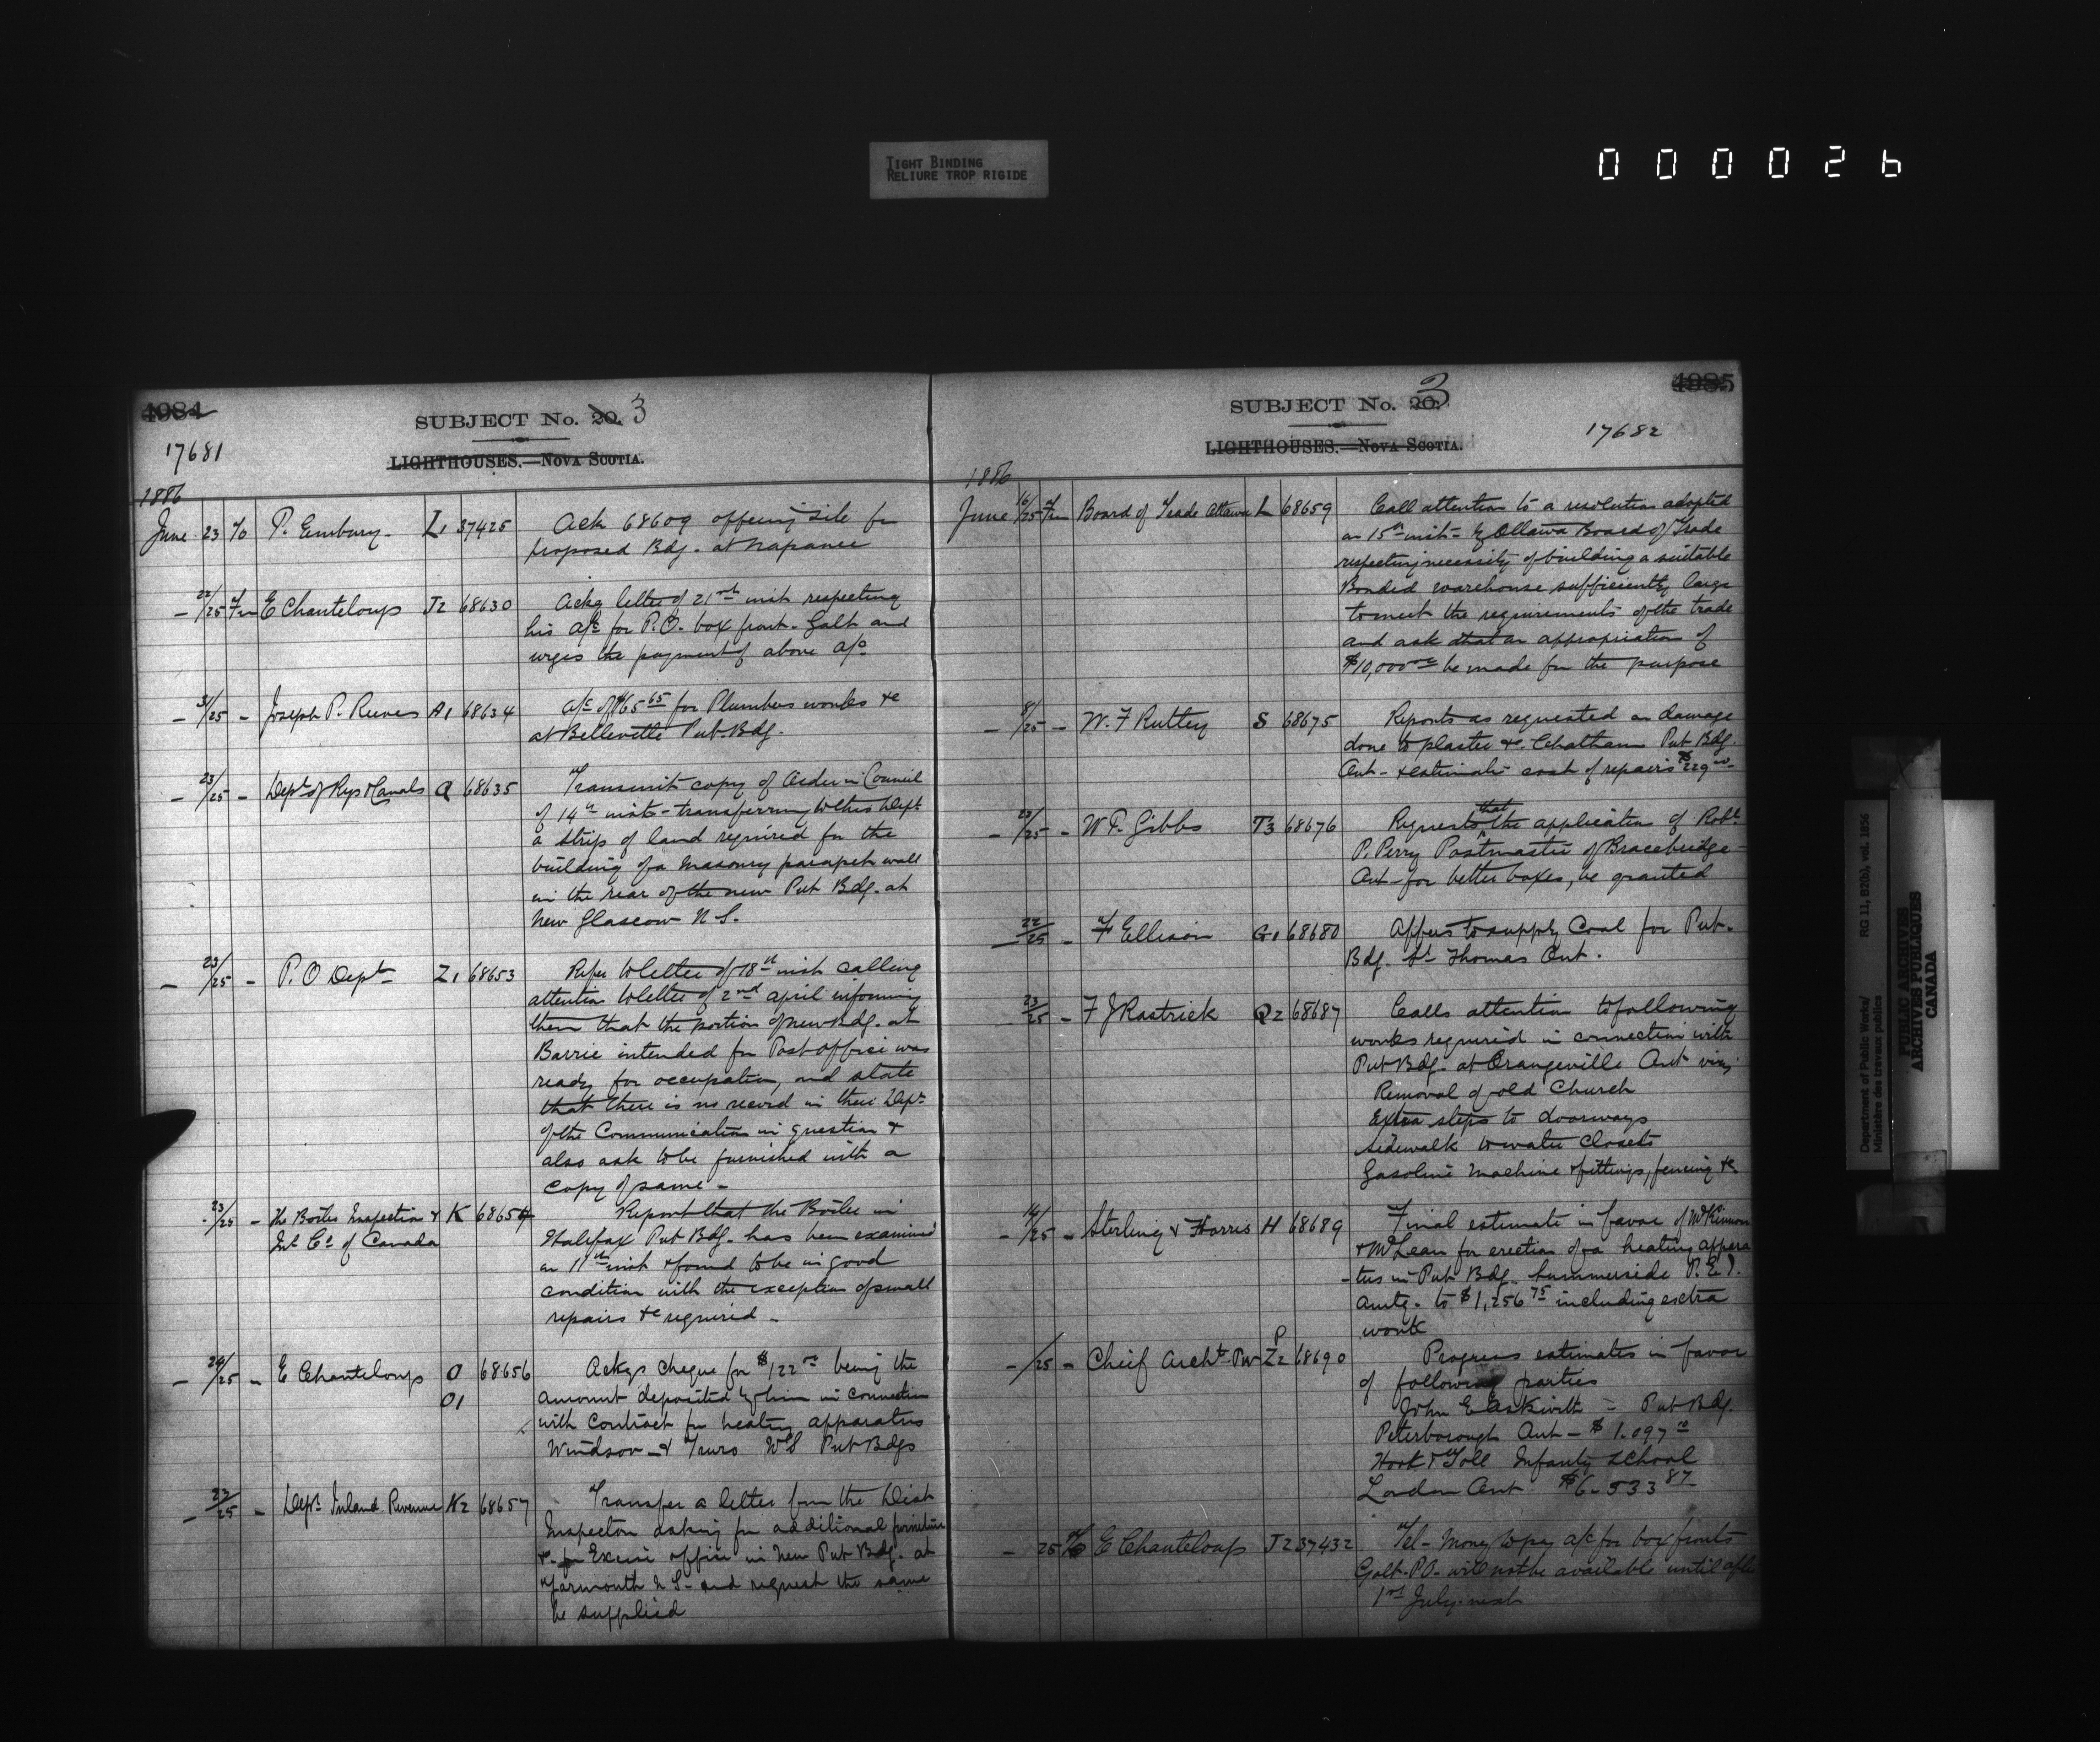 TIGHT BINDING
RELIURE TROP RIGIDE
000026
4984
SUBJECT No. 20. 3
17681
LIGHTHOUSES.—NOVA SCOTIA.
1886
June 23 To P. Embury. L1 37425 Ack 68609 offering site for
proposed Bdg. at Napanee
— 22/25 Fm E Chanteloup J2 68630 Ackg letter of 21st inst respecting
his a/c for P.O. box front. Galt and
urges the payment of above a/c
— 3/25 — Joseph P. Reeves A1 68634 a/c of $65.65 for Plumbers works &c
at Belleville Pub. Bdg.
— 23/25 — Dept of Rys & Canals Q 68635 Transmit copy of Order in Council
of 14th inst - transferring to this Dept
a strip of land required for the
building of a masonry parapet wall
in the rear of the new Pub Bdg. at
New Glascow N.S.
— 23/25 — P.O Dept Z1 68653 Refer to letter of 18th inst calling
attention to letter of 2nd April informing
them that the portion of new Bdg. at
Barrie intended for Post office was
ready for occupation, and state
that there is no record in their Dept
of the Communication in question &
also ask to be furnished with a
copy of same -
23/25 — The Boiler Inspection & K 68654 Report that the Boiler in
Int Co of Canada Halifax Pub Bdg. has been examined
on 11th inst & found to be in good
condition with the exception of small
repairs &c required -
— 24/25 — E Chanteloup O 68656 Ackgs cheque for $122 being the
O1 amount deposited by him in connection
with contract for heating apparatus
Windsor & Truro NS Pub Bdgs
— 23/25 — Dept Inland Revenue N2 68657 Transfer a letter from the Dist
Inspector asking for additional furniture
&c. for Excise office in New Pub Bdg. at
Yarmouth N.S. and request the same
be supplied
4985
SUBJECT No. 20. 3
17682
LIGHTHOUSES.—NOVA SCOTIA.
1886
June 16/25 Fm Board of Trade Ottawa L 68659 Call attention to a resolution adopted
on 15th inst - by Ottawa Board of Trade
respecting necessity of building a suitable
Bonded warehouse sufficiently large
to meet the requirements of the trade
and ask that an appropriation of
$10,000 be made for the purpose
— 8/25 — W. F Rutley S 68675 Reports as requested on damage
done to plaster &c. Chatham Pub. Bdg.
Ont - & estimates cost of repairs $229
— 23/25 — W F. Gibbs T3 68676 Requests that the application of Robt
P. Perry Postmaster of Bracebridge
Ont - for better boxes, be granted
— 22/25 — F Ellison G1 68680 Offers to supply Coal for Pub.
Bdg. St Thomas Ont.
23/25 — F J Rastrick Q2 68687 Calls attention to following
works required in connection with
Pub Bdg. at Orangeville Ont viz;
Removal of old Church
Extra steps to doorways
Sidewalk to water closets
Gasoline Machine & fittings, fencing &c
— 14/25 — Sterling & Harris H 68689 Final estimate in favor of McKinnon
& McLean for erection of a heating appara
-tus in Pub Bdg. Summerside P.E.I.
amtg. to $1,256.75 including extra
work
— /25 — Cheif Archt. PW P Z2 68690 Progress estimates in favor
of following parties
John E Askwith - Pub Bdg.
Peterborough Ont - $1.097
Hook & Toll Infantry School
London Ont $6.533 87
— 25 To E Chanteloup J2 37432 Tel - Money to pay a/c for box fronts
Galt. P.O. will not be available until after
1st July next
Department of Public Works/ RG 11, B2(b), vol. 1856
Ministère des travaux publics
PUBLIC ARCHIVES
ARCHIVES PUBLIQUES
CANADA